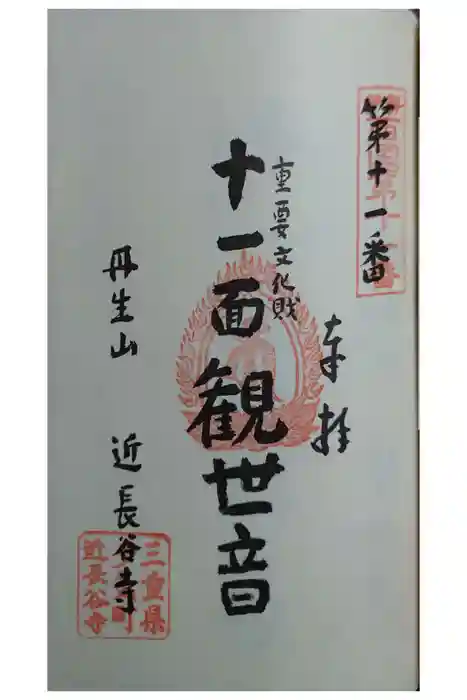 第十一番
奉拝
重要文化財
十一面観世音
丹生山 近長谷寺
三重県
町
近長谷寺